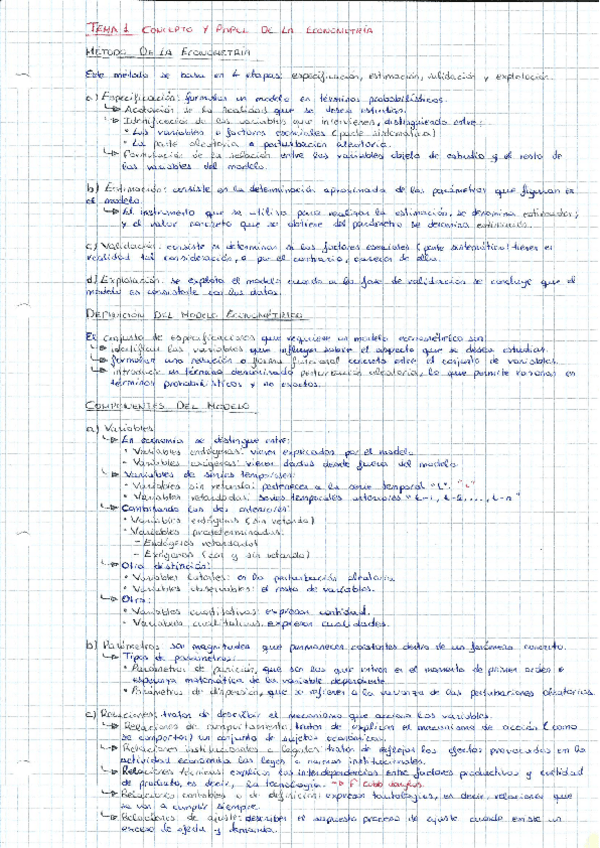 TEMA 1 CONCEPTO Y PAPEL DE LA ECONOMETRÍA
MÉTODO DE LA ECONOMETRÍA
Este método se basa en 4 etapas: especificación, estimación, validación y explotación.
a) Especificación: formular un modelo en términos probabilísticos.
↳ Acotación de la realidad que se desea estudiar.
↳ Identificación de las variables que intervienen, distinguiendo entre:
• Las variables o factores esenciales (parte sistemática)
• La parte aleatoria o perturbación aleatoria.
↳ Formulación de la relación entre las variables objeto de estudio y el resto de
las variables del modelo.
b) Estimación: consiste en la determinación aproximada de los parámetros que figuran en
el modelo.
↳ El instrumento que se utiliza para realizar la estimación, se denomina estimador;
y el valor concreto que se obtiene del parámetro se denomina estimación.
c) Validación: consiste en determinar si los factores esenciales (parte sistemática) tienen en
realidad tal consideración, o por el contrario, carecen de ella.
d) Explotación: se explota el modelo cuando en la fase de validación se concluye que el
modelo es consistente con los datos.
DEFINICIÓN DEL MODELO ECONOMÉTRICO
El conjunto de especificaciones que requiere un modelo econométrico son
↳ identificar las variables que influyen sobre el aspecto que se desea estudiar.
↳ formular una relación o forma funcional concreta entre el conjunto de variables.
↳ introducir un término denominado perturbación aleatoria, lo que permite razonar en
términos probabilísticos y no exactos.
COMPONENTES DEL MODELO
a) Variables
↳ En economía se distingue entre:
• Variables endógenas: vienen explicadas por el modelo
• Variables exógenas: vienen dadas desde fuera del modelo.
↳ Variables de series temporales:
• Variables sin retardo: pertenecen a la serie temporal "t". "t"
• Variables retardadas: series temporales anteriores "t-1, t-2, ..., t-n"
↳ Combinando las dos anteriores:
• Variables endógenas (sin retardo)
• Variables predeterminadas:
- Endógenas retardadas
- Exógenas (con y sin retardo)
↳ Otra distinción:
• Variables latentes: es la perturbación aleatoria
• Variables observables: el resto de variables.
↳ Otra:
• Variables cuantitativas: expresan cantidad.
• Variables cualitativas: expresan cualidades.
b) Parámetros: son magnitudes que permanecen constantes dentro de un fenómeno concreto.
↳ Tipos de parámetros:
• Parámetros de posición, que son los que entran en el momento de primer orden o
esperanza matemática de la variable dependiente.
• Parámetros de dispersión, que se refieren a la varianza de las perturbaciones aleatorias.
c) Relaciones: tratan de describir el mecanismo que acciona las variables.
↳ Relaciones de comportamiento: tratan de explicar el mecanismo de acción (como
se comportan) un conjunto de sujetos económicos.
↳ Relaciones institucionales o legales: tratan de reflejar los efectos provocados en la
actividad económica las leyes o normas institucionales.
↳ Relaciones técnicas: explican las interdependencias entre factores productivos y cantidad
de producto, es decir, la tecnología. → Fº Cobb douglas
↳ Relaciones contables o de definición: expresan tautologías, es decir, relaciones que
se van a cumplir siempre.
↳ Relaciones de ajuste: describen el supuesto proceso de ajuste cuando existe un
exceso de oferta y demanda.